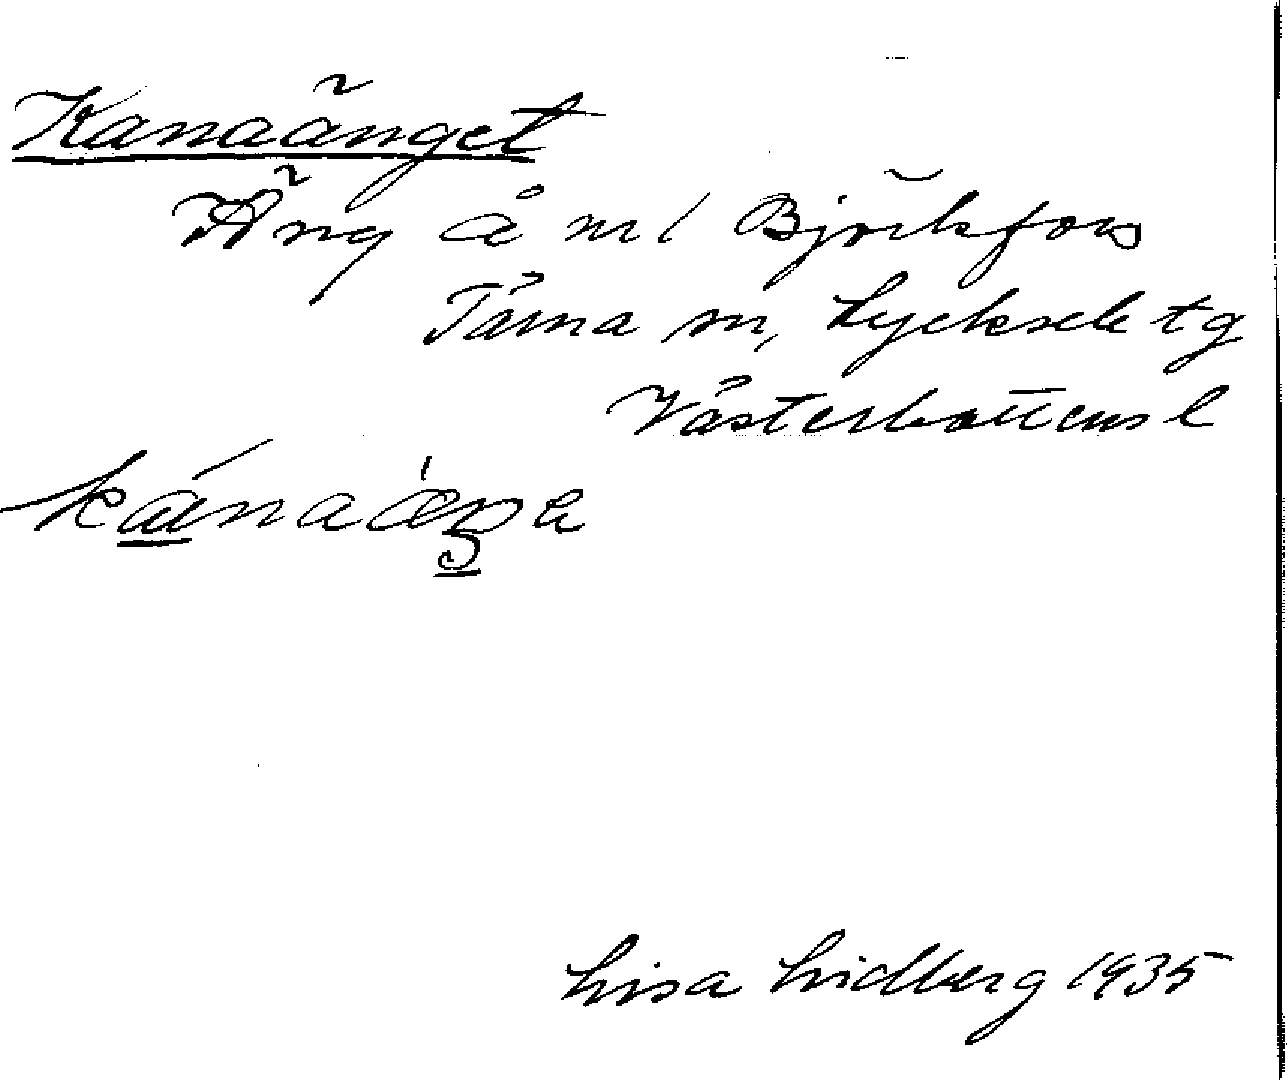 Kanaänget
Äng å nr 1 Björkfors
Tärna sn, Lycksele tg
Västerbottens l
Lisa Lidberg 1935